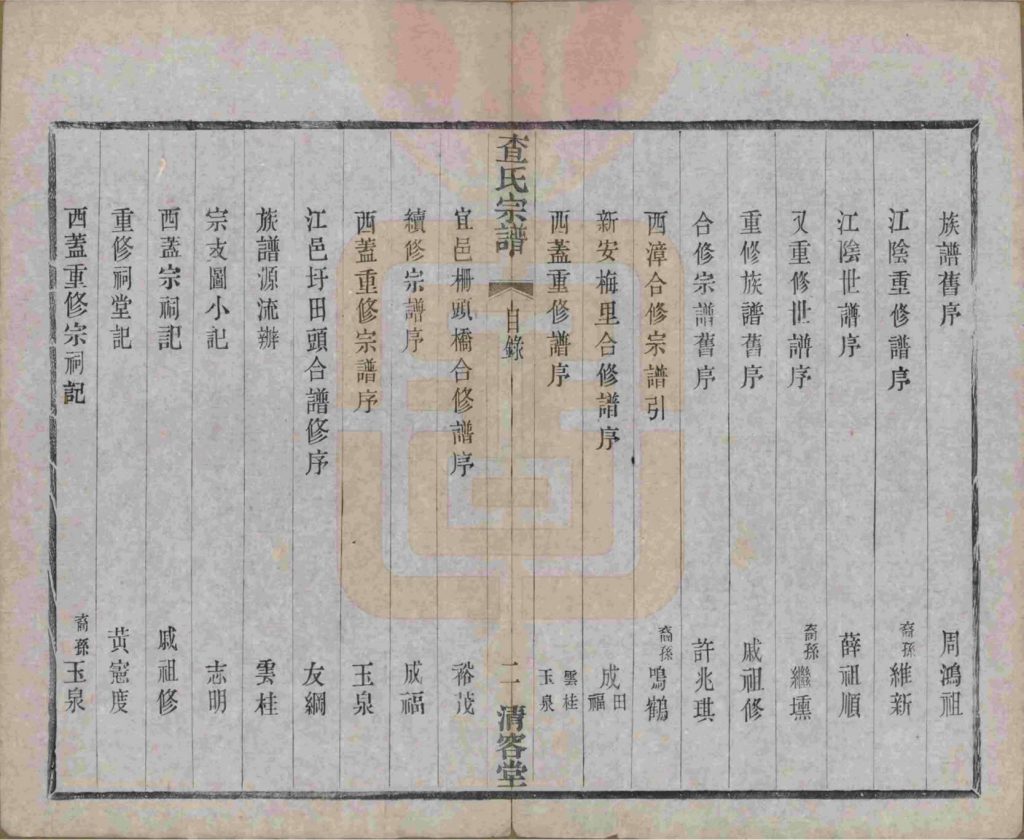 族譜舊序 周鴻祖
江陰重修譜序 裔孫維新
江陰世譜序 薛祖順
又重修世譜序 裔孫繼壎
重修族譜舊序 戚祖修
合修宗譜舊序 許兆琪
西漳合修宗譜引 裔孫鳴鶴
新安梅里合修譜序 成田 福
西蓋重修譜序 雲桂 玉泉
查氏宗譜 目錄 二 清容堂
宜邑柵頭橋合修譜序 裕茂
續修宗譜序 成福
西蓋重修宗譜序 玉泉
江邑圩田頭合譜修序 友綱
族譜源流辨 雲桂
宗支圖小記 志明
西蓋宗祠記 戚祖修
重修祠堂記 黃寬度
西蓋重修宗祠記 裔孫玉泉